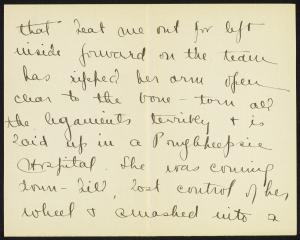 that beat me out for left
inside forward on the team
has ripped her arm open
clear to the bone - torn all
the ligaments terribly & is
laid up in a Poughkeepsie
Hospital. She was coming
down-hill, lost control of her
wheel & smashed into a